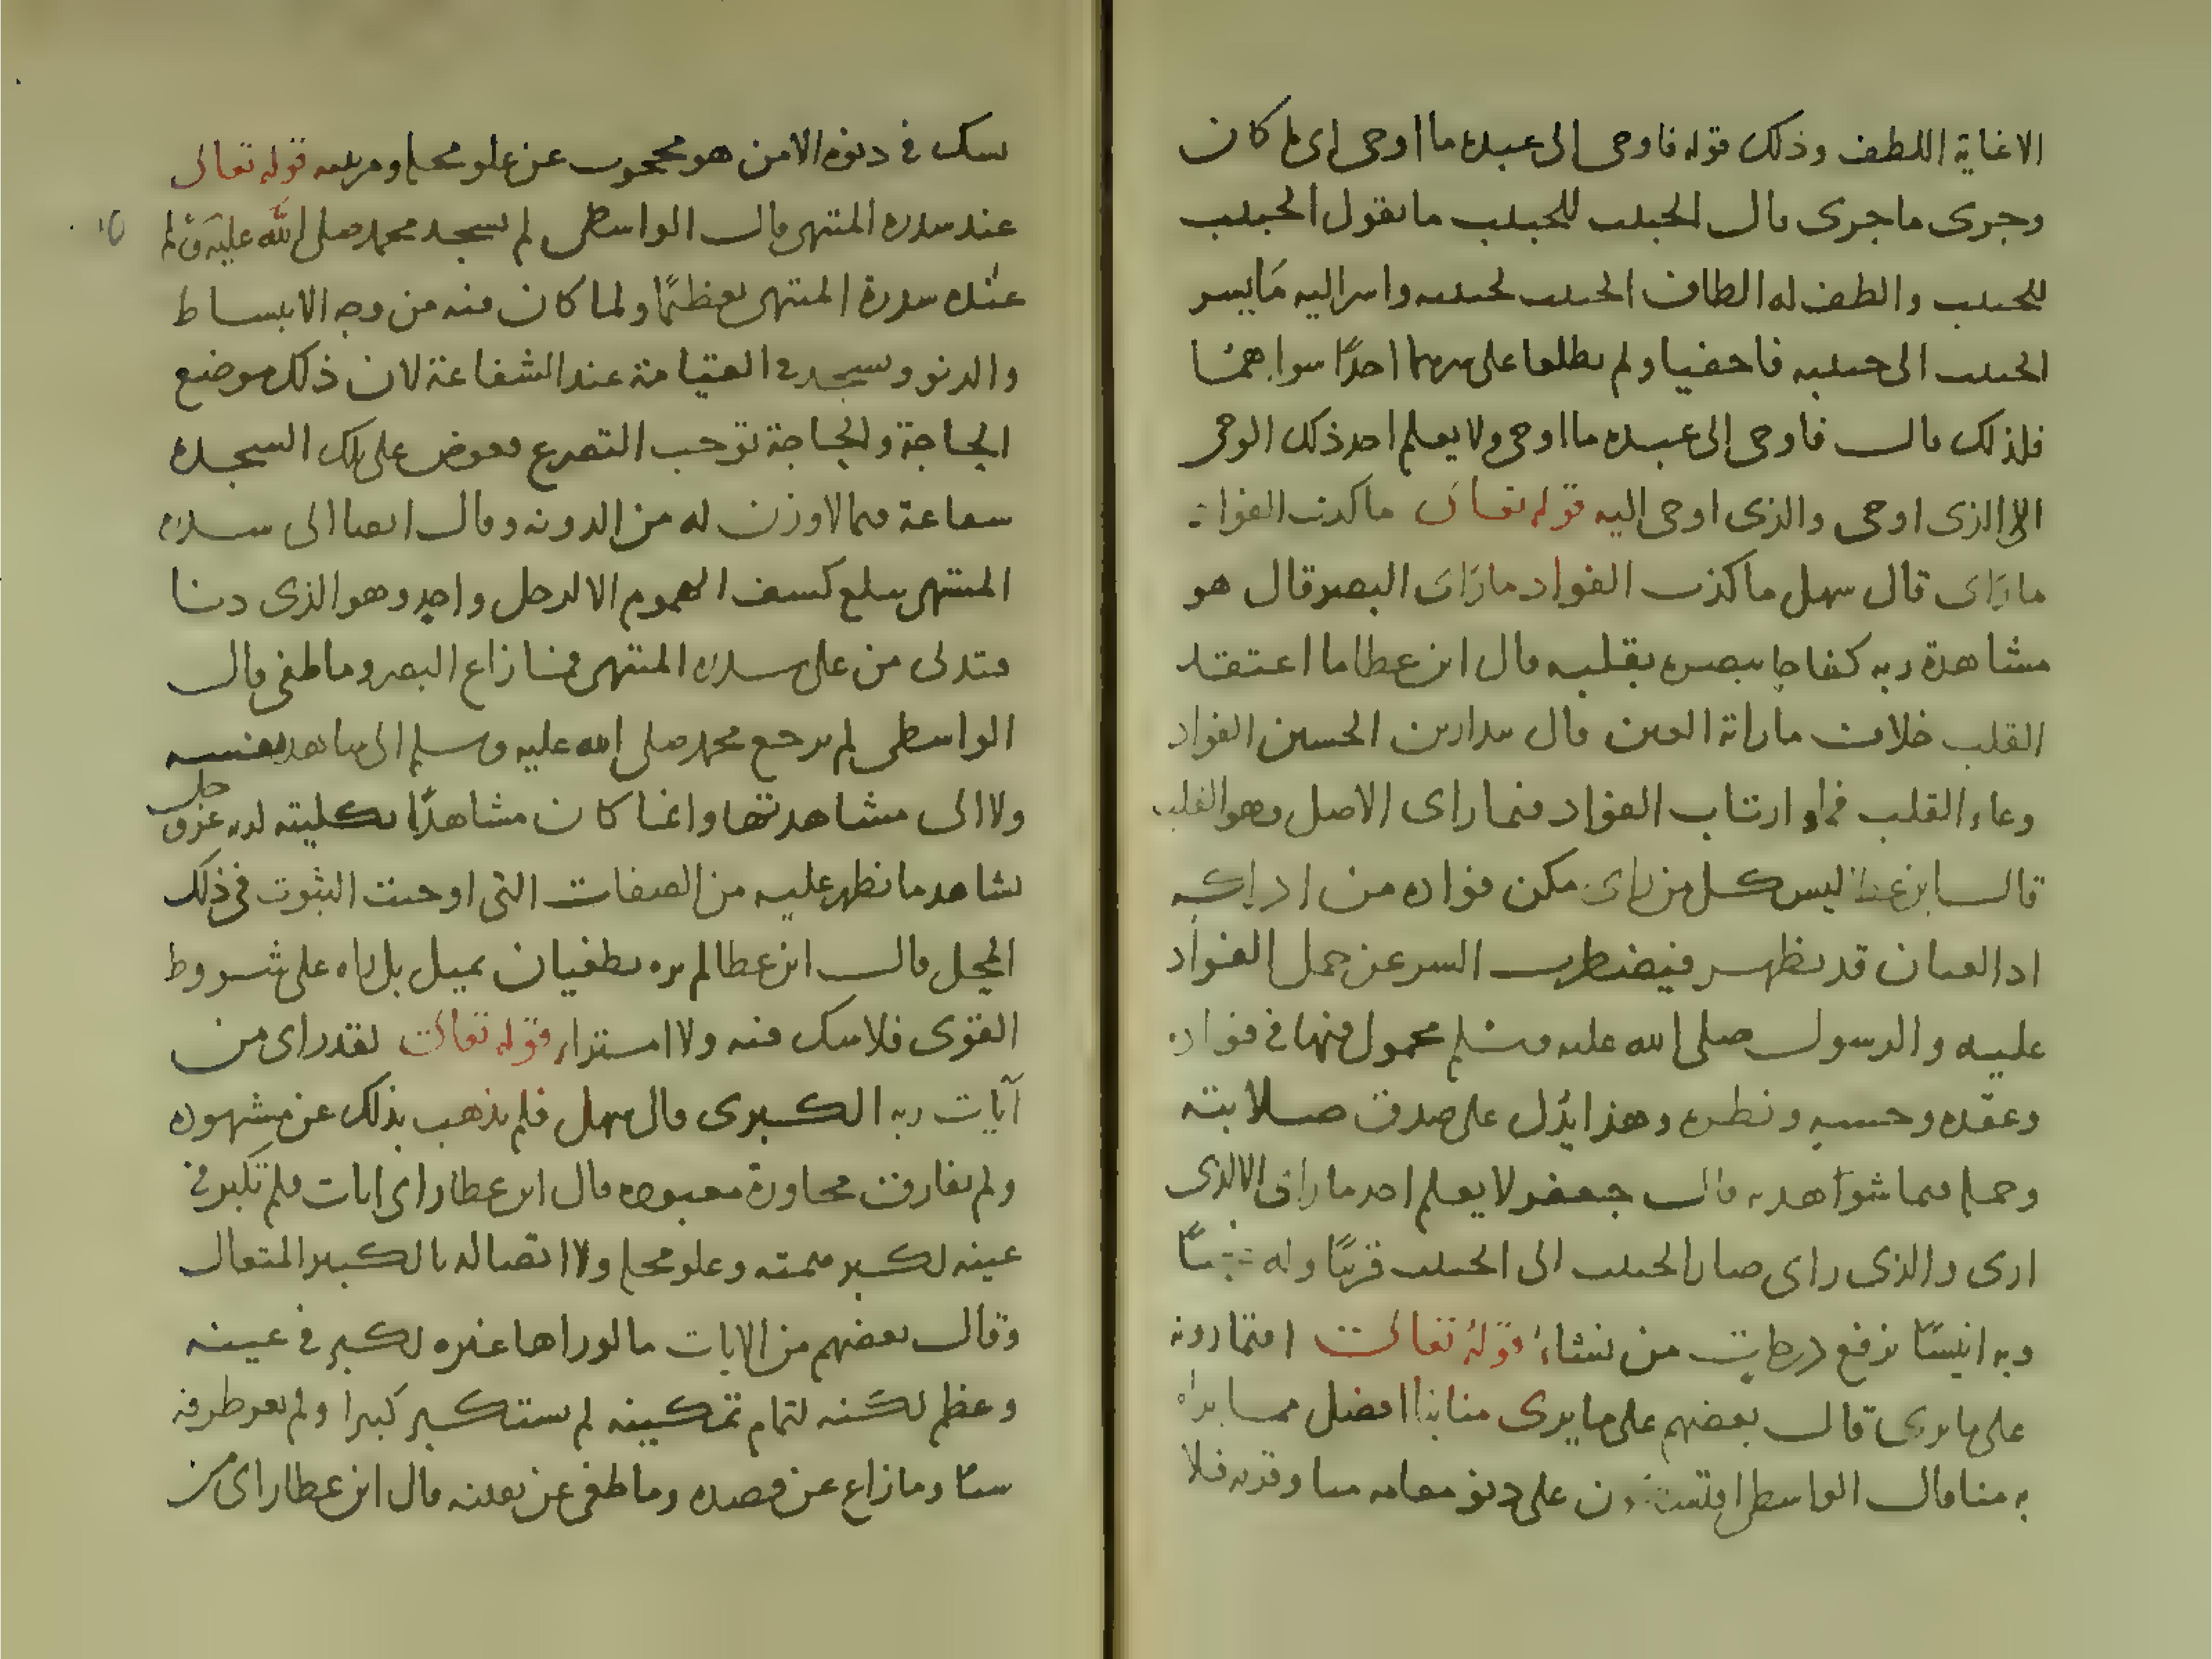 الا غاية اللطف وذلك قوله فاوحى الى عبده ما اوحى اى ما كان
وجرى ما جرى قال الحبيب للحبيب ما يقول الحبيب
للحبيب والطف له الطاف الحبيب لحبيبه واسر اليه ما يسر
الحبيب الى حبيبه فاخفيا ولم يطلعا على سرهما احدًا سواهما
فلذلك قال فاوحى الى عبده ما اوحى ولا يعلم احد ذلك الوحى
الا الذى اوحى والذى اوحى اليه قوله تعالى ما كذب الفواد
ما راى قال سهل ما كذب الفواد ما راى البصر قال هو
مشاهدة ربه كفاحا ببصره بقلبه قال ابن عطا ما اعتقد
القلب خلاف ما راته العين قال بندار بن الحسين الفواد
وعاء القلب فما ارتاب الفواد فيما راى الاصل وهو القلب
قال ابن عطا ليس كل من راى مكن فواده من ادراكه
اذ العيان قد يظهر فيضطرب السر عن حمل الفواد
عليه والرسول صلى الله عليه وسلم محمول فيها فى فواده
وعقده وحسه ونظره وهذا يدل على صدق صلابته
وحمله فيما شوهد به قال جعفر لا يعلم احد ما راى الا الذى
ارى والذى راى صار الحبيب الى الحبيب قريبًا وله نجيبًا
وبه انيسًا نرفع درجات من نشاء قوله تعالى افتمارونه
على ما يرى قال بعضهم على ما يرى منا بنا افضل مما يراه
به منا قال الواسطى على دنو مقامه منا وقربه فلا
شك فى دنوه الا من هو محجوب عن علو محله ومرتبته قوله تعالى
عند سدرة المنتهى قال الواسطى لم يسجد محمد صلى الله عليه وسلم
عند سدرة المنتهى تعظيمًا ولما كان منه من وجه الانبساط
والدنو وسيجد فى القيامة عند الشفاعة لان ذلك موضع
الحاجة والحاجة توجب التضرع فعوض على تلك السجدة
شفاعة فيما لا وزن له من الدونه وقال ايضا الى سدرة
المنتهى يبلغ كشف الهموم الا لرجل واحد وهو الذى دنا
فتدلى من على سدرة المنتهى فما زاغ البصر وما طغى قال
الواسطى لم يرجع محمد صلى الله عليه وسلم الى شاهد نفسه
ولا الى مشاهدتها وانما كان مشاهدًا بكليته لربه عز وجل
يشاهد ما يظهر عليه من الصفات التى اوجبت الثبوت فى ذلك
المحل قال ابن عطا لم يره بطغيان يميل بل راه على شروط
القوى فلا شك فيه ولا استزار قوله تعالى لقد راى من
آيات ربه الكبرى قال سهل فلم يذهب بذلك عن مشهوده
ولم يفارق مجاورة معبوده قال ابن عطا راى ايات فلم تكبر فى
عينه لكبر همته وعلو محله ولا اتصاله بالكبير المتعال
وقال بعضهم من الايات ما لو راها غيره لكبر فى عينه
وعظم لكنه لتمام تمكينه لم يستكبر كبيرا ولم يعر طرفه
شيئًا وما زاغ عن قصده وما طغى عن يقينه قال ابن عطا راى من